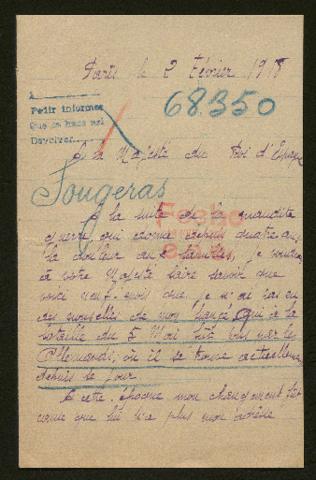 Paris le 2 Février 1918
A
Pedir informes
Que se hace así
Devolver
68.350
A la Majesté du Roi d'Espagne
Fougeras
A la suite de la
guerre qui donne depuis quatre ans
la douleur aux familles, je voudrais
à votre Majesté faire savoir que
voici neuf mois que je n'ai pas eu
des nouvelles de mon fiancé qui à la
bataille du 5 Mai fut pris par les
Allemands, où il se trouve actuellement
depuis ce jour
A cette époque mon changement
que lui n'a plus mon adresse